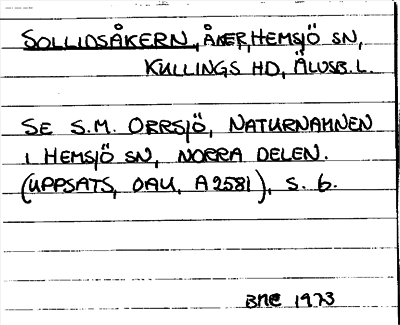 SOLLIDSÅKERN, ÅKER, HEMSJÖ SN,
KULLINGS HD, ÄLVSB. L.
SE S.M. ORRSJÖ, NATURNAMNEN
I HEMSJÖ SN, NORRA DELEN.
(UPPSATS, OAU, A2581), S. 6.
BMC 1973